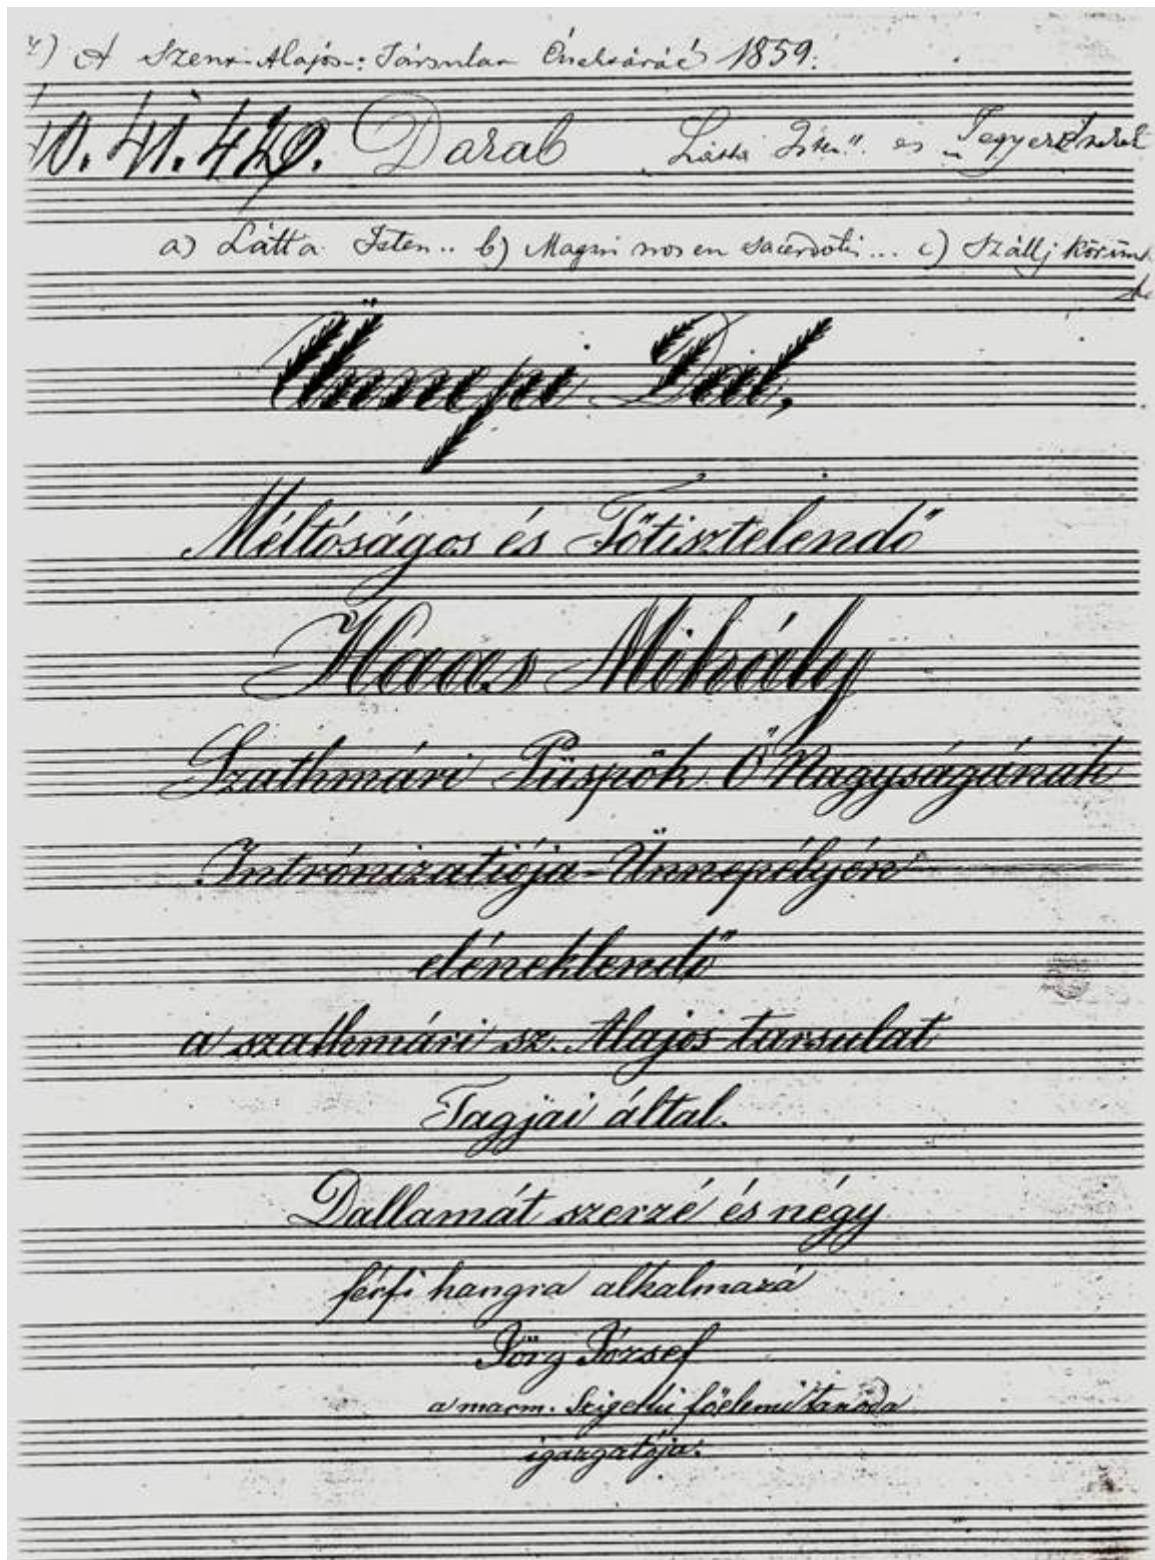 A Szent-Alajos-Társulat Énektáráé 1859.
40. 41. 42. Darab Látta Isten" és
a) Látta Isten.. b) c) Szállj körünk
Ünnepi Dal,
Méltóságos és Főtisztelendő
Haas Mihály
Szathmári Püspök Ő Nagyságának
Intrónizatiója-Ünnepélyén
éléneklendő
a szathmári sz. Alajos tarsulat
Tagjai által.
Dallamát szerzé és négy
férfi hangra alkalmazá
Jörg József
a marm. Szigethi főelemi tanoda
igazgatója.